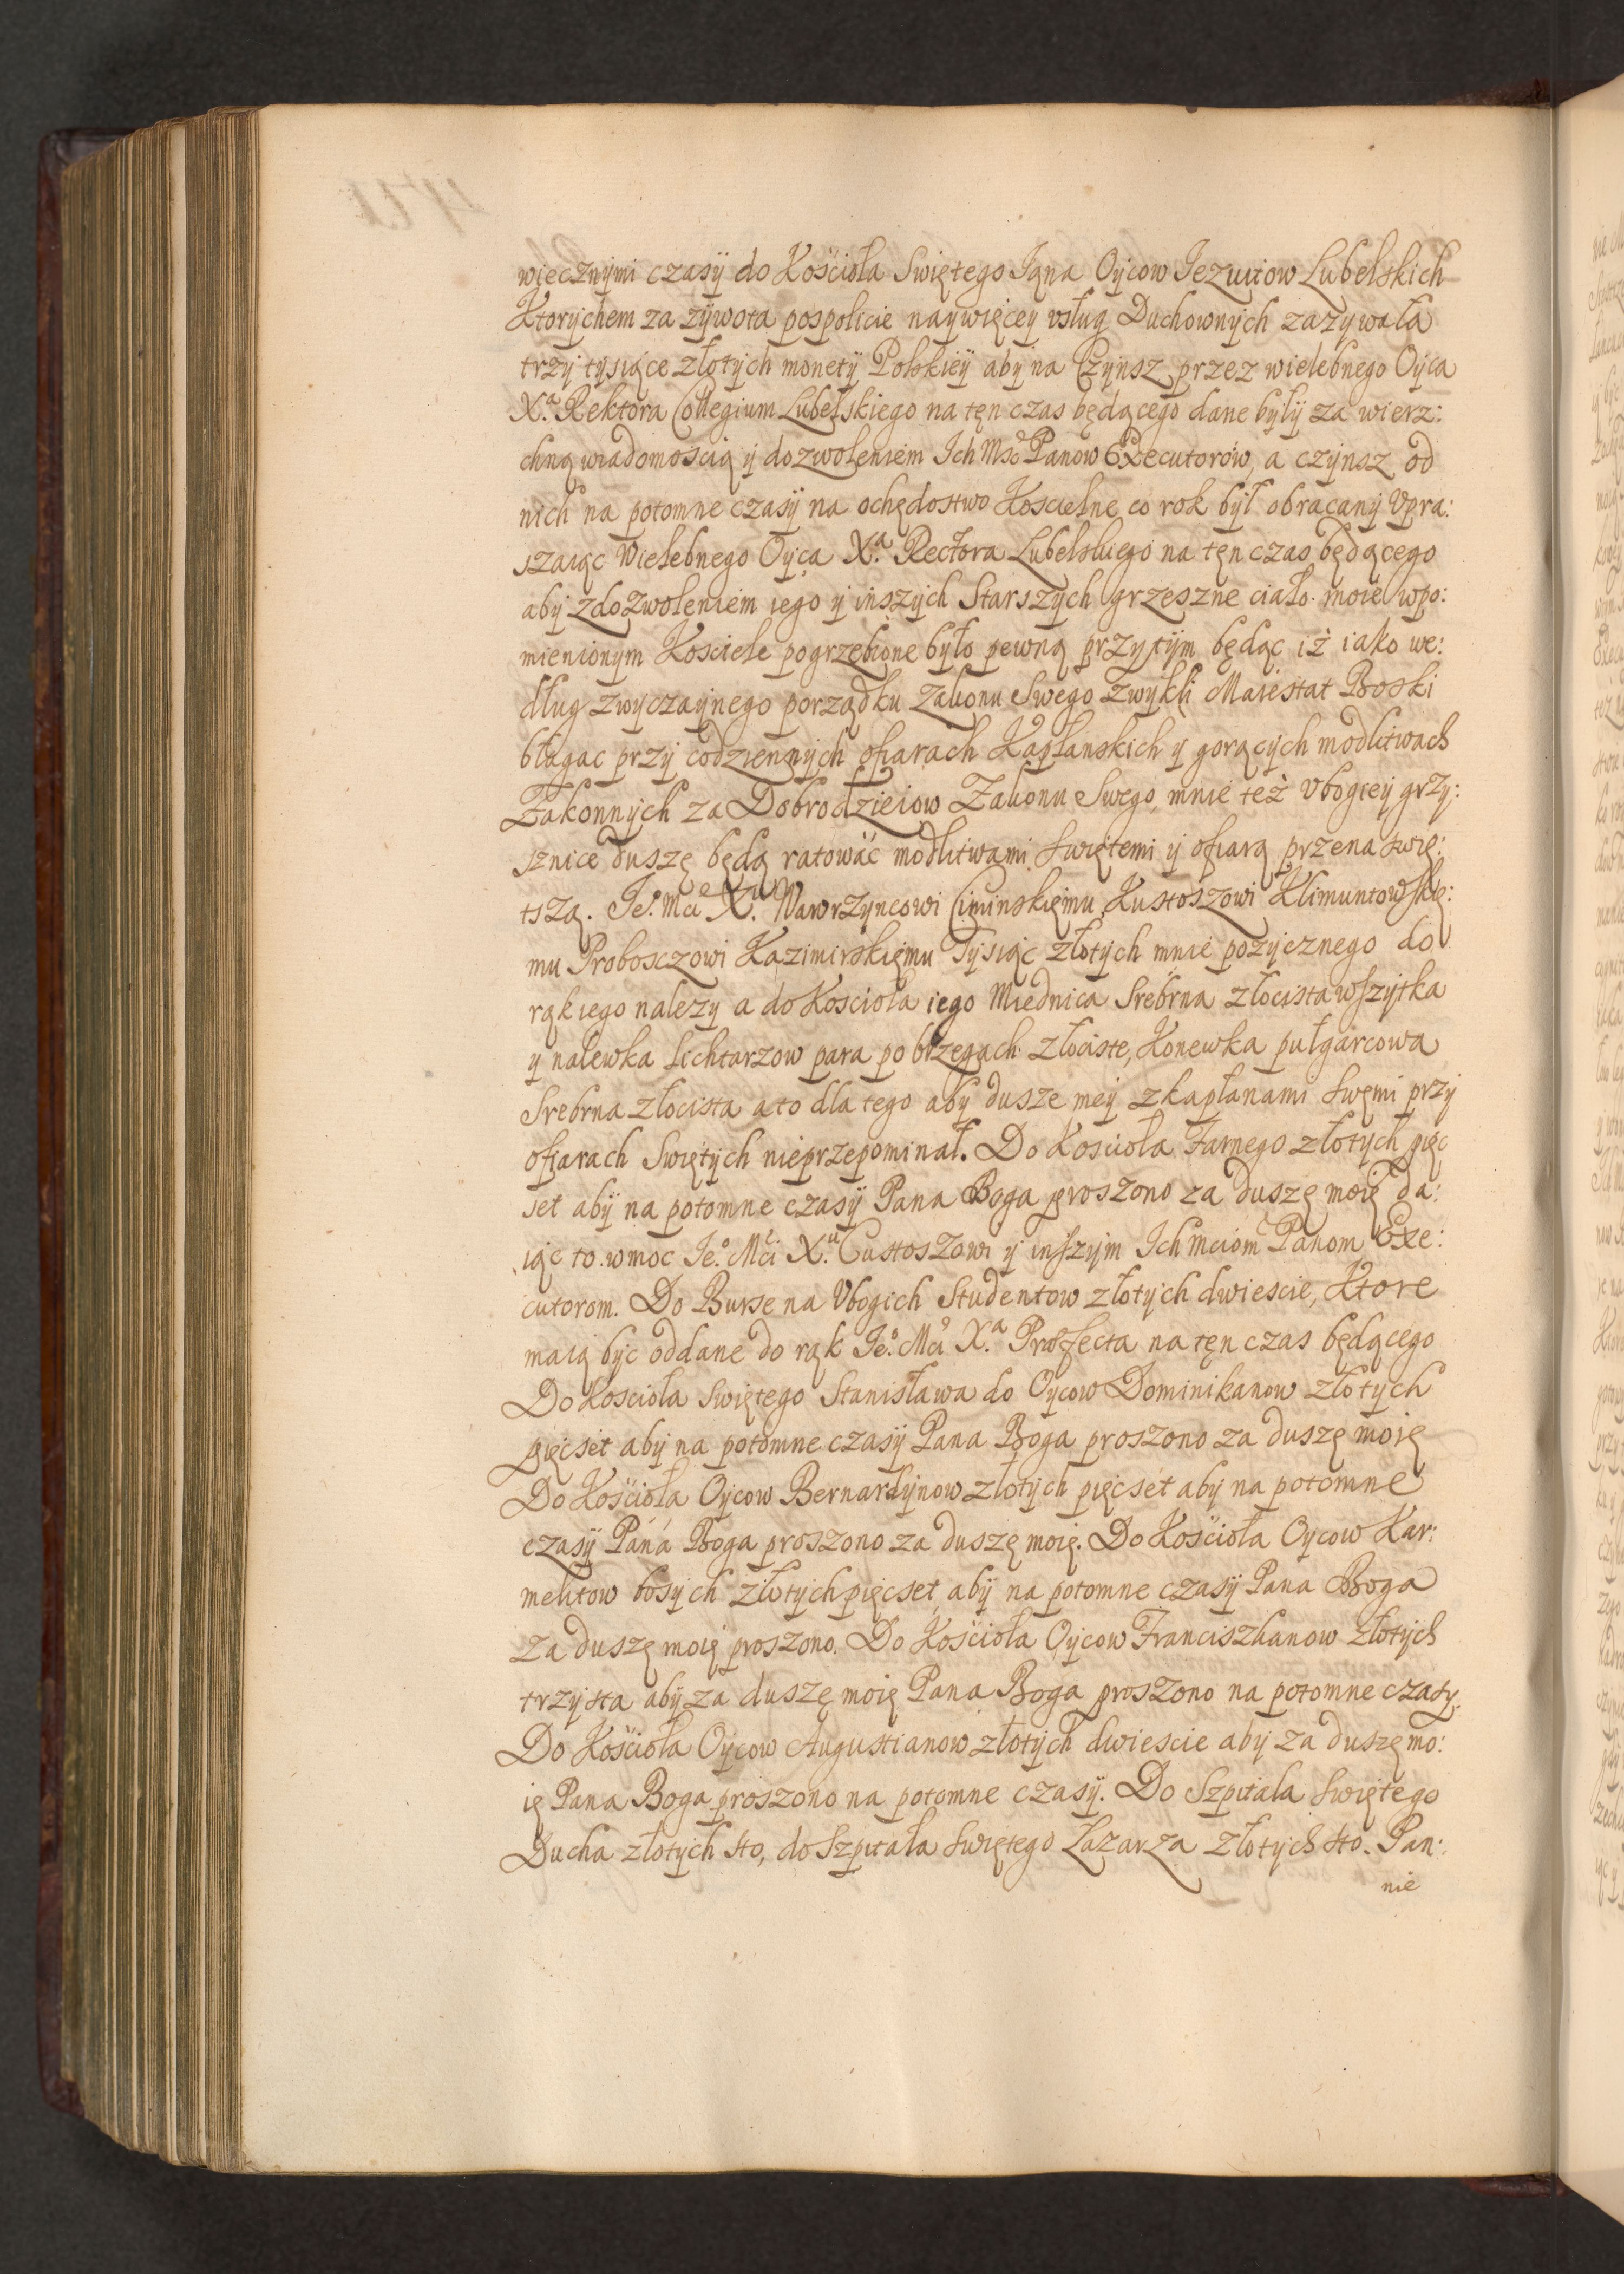 wiecznÿmi czasÿ do Kościoła Swiętego Iana Oÿcow Iezuitow Lubelskich
Ktorÿchem za zÿwota pospolicie naywięcey vsług Duchownÿch zazywała
trzÿ tÿsiące złotÿch monetÿ Polskieÿ abÿ na Czÿnsz przez wielebnego Oÿca
X.ª Rektora Collegium Lubelskiego na tęn czas będącego dane bÿłÿ za wierz:
chną wiadomoscią ÿ dozwoleniem Ich Mśc Panow Executorów, a czÿnsz od
nich na potomne czasÿ na ochędostwo Koscielne co rok bÿł obracanÿ Vpra:
szaiąc Wielebnego Oÿca X.ª Rectora Lubelskiego na tęn czas będącego
abÿ zdozwoleniem iego ÿ inszÿch Starszÿch grzeszne ciało moie wpo:
mienionÿm Kosciele pogrzebione bÿło pewną przÿ tÿm będąc iż iako we:
dług zwÿczaÿnego porządku Zakonu Swego zwÿkli Maiestat Boski
błagac przÿ codziennÿch ofiarach Kapłanskich ÿ gorącÿch modlitwach
Zakonnÿch za Dobrodzieiow Zakonu Swego, mnie też Vbogieÿ grzÿ:
sznice duszę będą ratowáć modlitwami Swiętemi ÿ ofiarą przenaswię:
tszą. Je.º Mci X.u Wawrzÿncowi Ciminskięmu Kustoszowi Klimuntowskię:
mu Proboszczowi Kazimirskięmu Tÿsiąc złotÿch mnie pozÿcznego do
rąk iego nalezy a do Koscioła iego Miednica Srebrna złocista wszÿtka
ÿ nalewka lichtarzow para po brzegach złociste, Konewka pułgarcowa
Srebrna złocista a to dla tego abÿ dusze meÿ z kapłanami Swęmi przÿ
ofiarach Swiętÿch nieprzepominał. Do Koscioła Farnego złotÿch pięc
set abÿ na potomne czasÿ Pana Boga proszono za duszę moię da:
iąc to w moc Ie.º Mci X.u Custoszowi ÿ inszÿm Ich mciom Panom Exe:
cutorom. Do Burse na Vbogich Studentow złotÿch dwiescie, Ktore
maią bÿc oddane do rąk Je.º Mci X.ª Præfecta na tęn czas będącego
Do Koscioła Swiętego Stanisława do Oÿcow Dominikanow złotÿch
pięcset abÿ na potomne czasÿ Pana Boga proszono za duszę moię
Do Kościoła Oÿcow Bernardÿnow złotÿch pięcset abÿ na potomne
czasÿ Páná Boga proszono za duszę moię. Do Kościoła Oÿcow Kar:
melitow bosÿch złotÿch pięcset, abÿ na potomne czasÿ Pana Boga
za duszę moię proszono. Do Kościoła Oÿcow Franciszkanow złotÿch
trzÿsta abÿ za duszę moię Pana Boga proszono na potomne czasÿ.
Do Kościoła Oÿcow Augustianow złotÿch dwiescie abÿ za duszę mo:
ię Pana Boga proszono na potomne czasÿ. Do Szpitala Swiętego
Ducha złotÿch sto, do Szpitala Swiętego Łazarza złotÿch sto. Pan:
nie